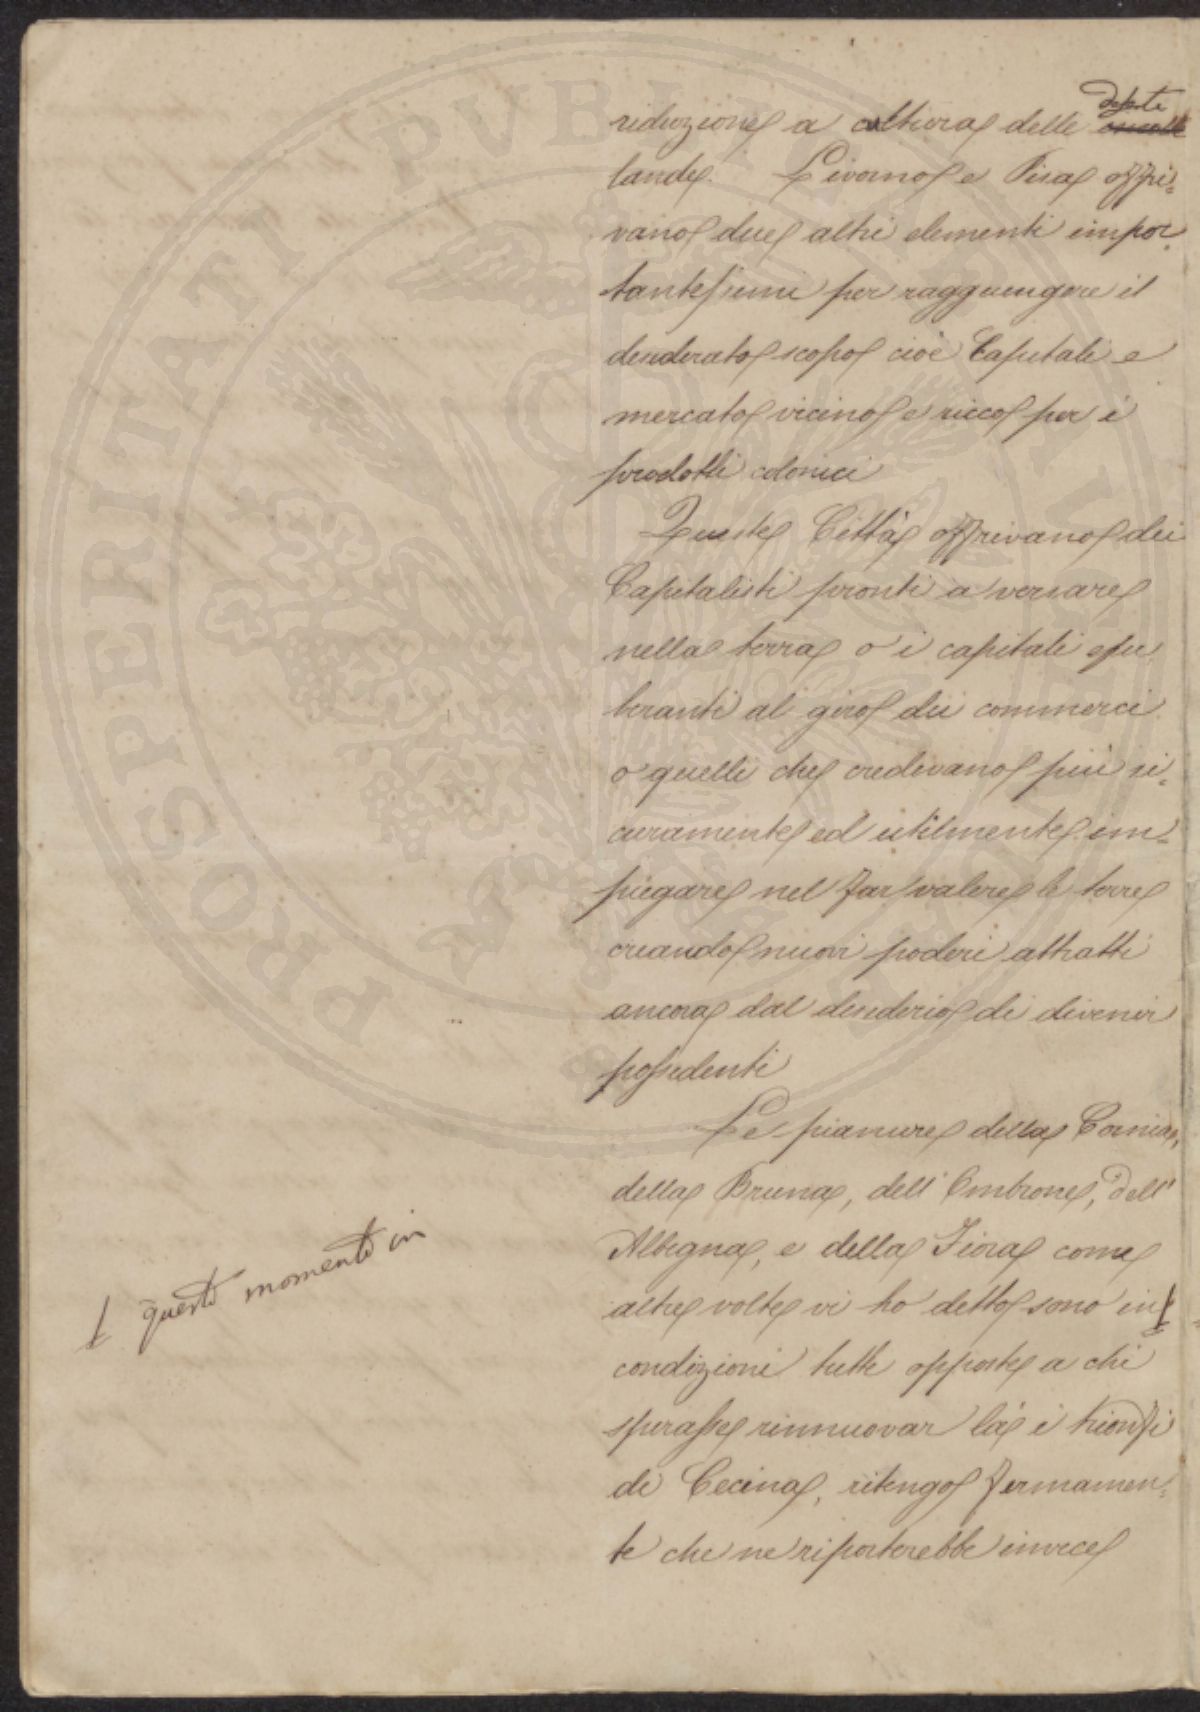 riduzione a coltura delle deserte incolte
lande. Livorno e Pisa offri=
vano due altri elementi impor=
tantessimi per ragguingere il
desiderato scopo cioè Capitali e
mercato vicino e ricco per i
prodotti colonici
Queste Città offrivano dei
Capitalisti pronti a versare
nella terra o i capitali esu
beranti al giro dei commerci
o quelli che credevano più si=
curamente ed utilmente im=
piegare nel far valere le terre
creando nuovi poderi attratti
ancora dal desiderio di divenir
possedenti
Le pianure della Cornia,
della Bruna, dell'Ombrone, dell'
Albegna, e della Fiora come
altre volte vi ho detto sono in
questo momento in
condizioni tutte opposte a chi
sperasse rinnuovar là i trionfi
di Cecina, ritengo fermamen=
te che ne riporterebbe invece
PROSPERITATI PUBLICAE